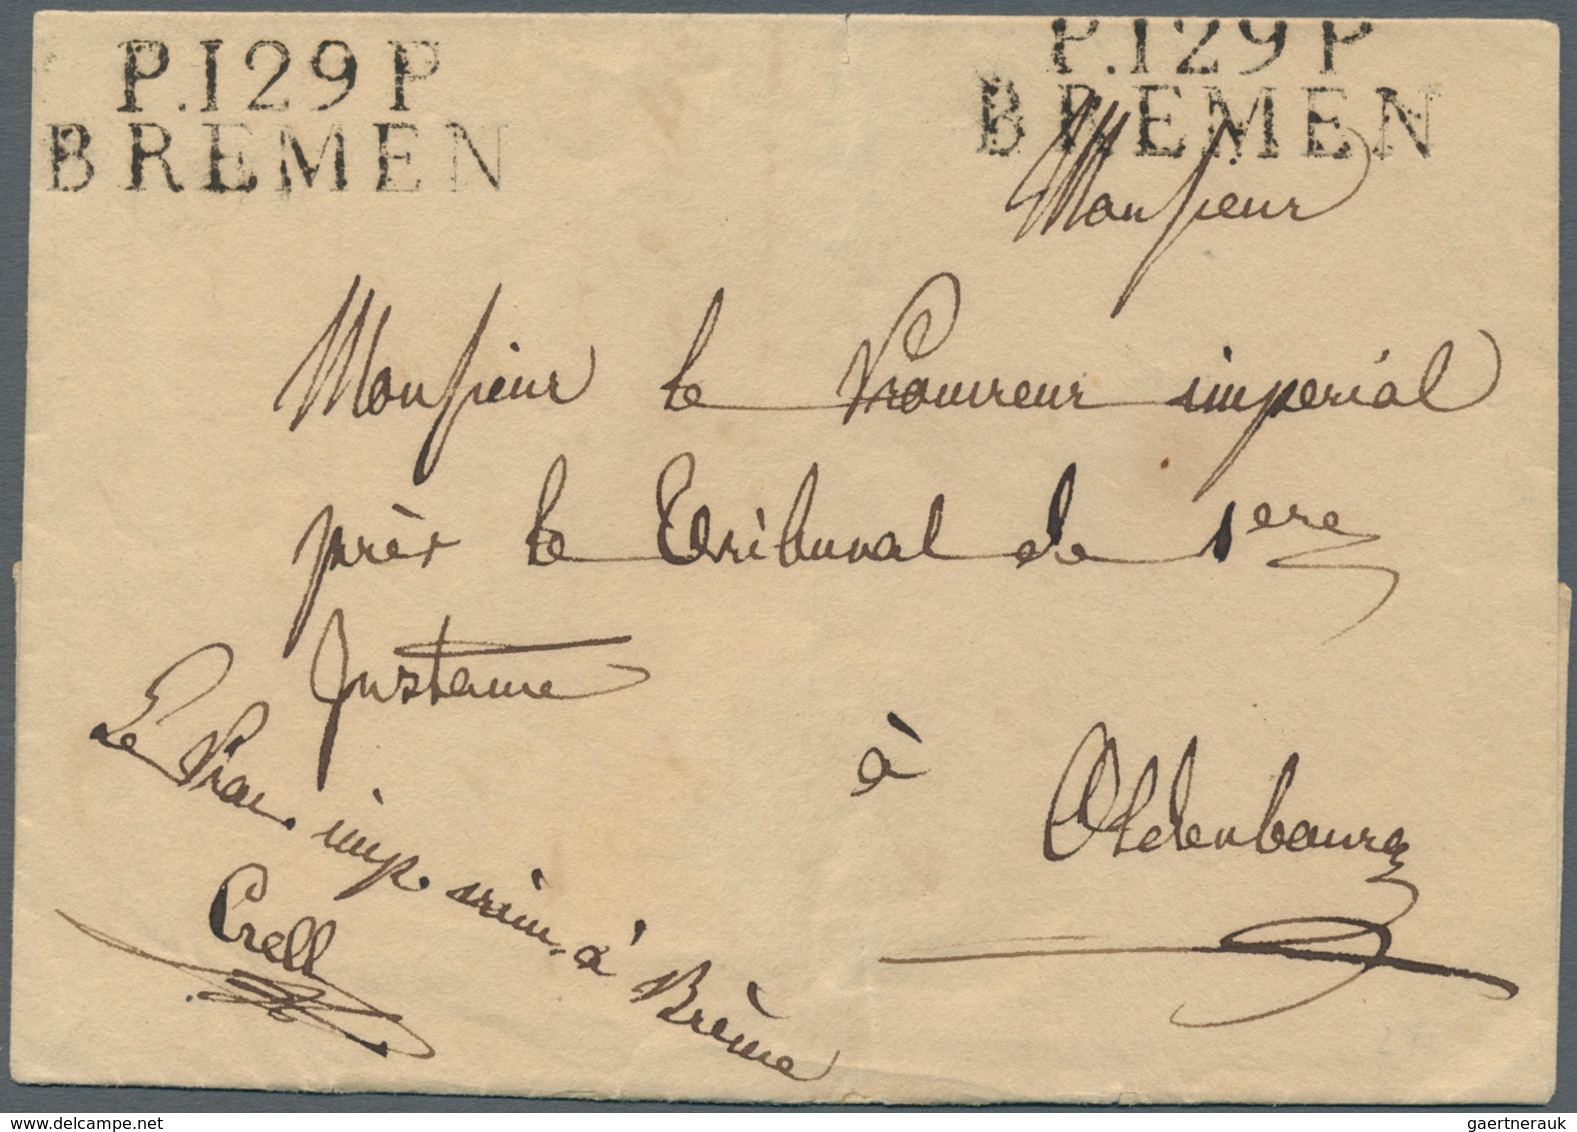 P.129 P
BREMEN
P.129 P
BREMEN
Monsieur
Monsieur le Procureur imperial
près le Tribunal de 1ere
Instance
à Oldenbourg
Le Proc. imp. crim. à Brême
Crell
gaertnerauk